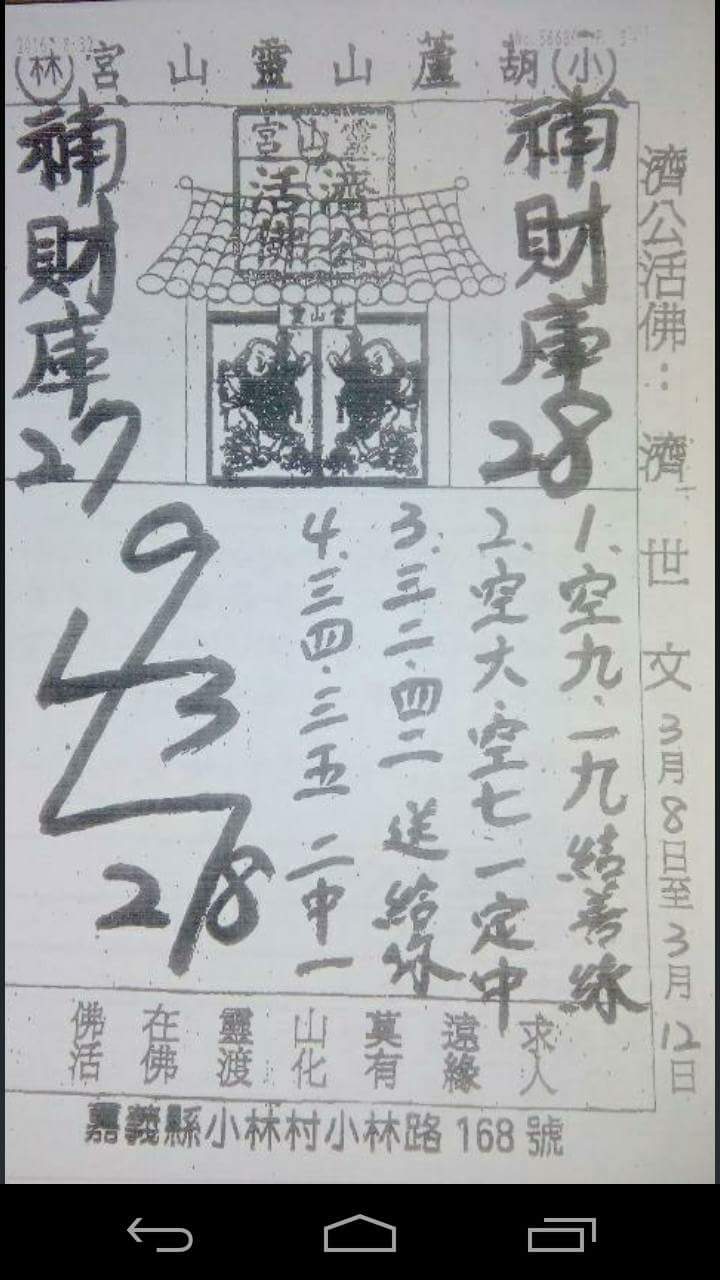 小林 胡蘆山靈山宮
濟公活佛：濟世文 3月8日至3月12日
靈山宮
濟公活佛
補財庫28
補財庫27
1.空九.一九結善緣
2.空大.空七一定中
3.三二.四二送給你
4.三四.三五 二中一
9
4 3
2 7 8
求人
遠緣
莫有
山化
靈渡
在佛
佛活
嘉義縣小林村小林路168號